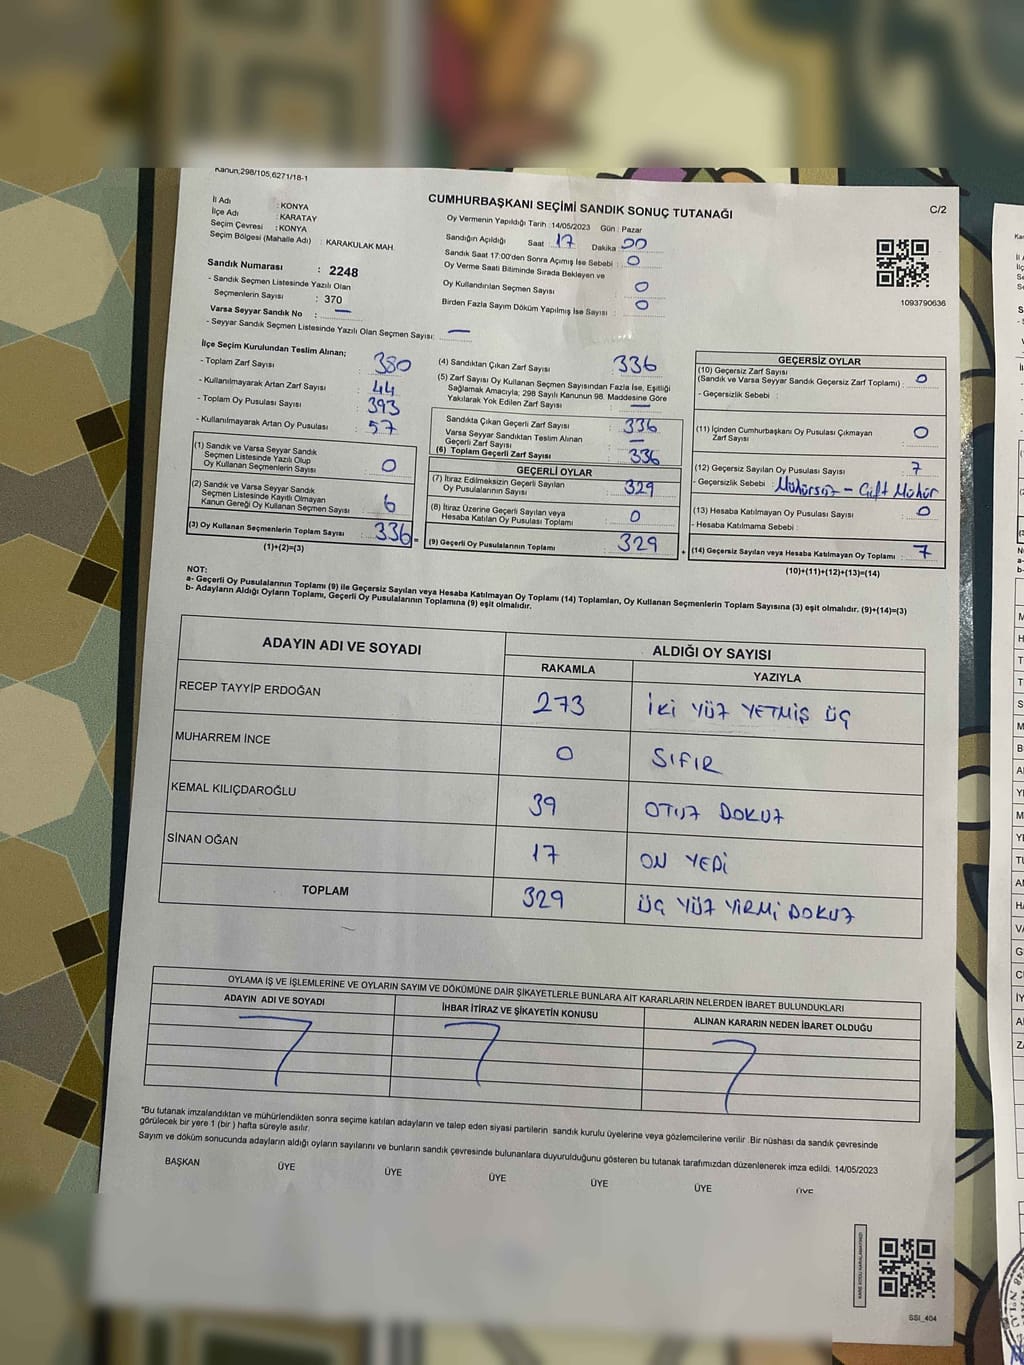 Kanun;298/105,6271/18-1
CUMHURBAŞKANI SEÇİMİ SANDIK SONUÇ TUTANAĞI
C/2
İl Adı : KONYA
İlçe Adı : KARATAY
Seçim Çevresi : KONYA
Seçim Bölgesi (Mahalle Adı) : KARAKULAK MAH.
Oy Vermenin Yapıldığı Tarih : 14/05/2023 Gün : Pazar
Sandığın Açıldığı Saat : 17 Dakika 00
Sandık Saat 17:00'den Sonra Açımış İse Sebebi : 0
Oy Verme Saati Bitiminde Sırada Bekleyen ve
Oy Kullandırılan Seçmen Sayısı : 0
Birden Fazla Sayım Döküm Yapılmış İse Sayısı : 0
1093790636
Sandık Numarası : 2248
- Sandık Seçmen Listesinde Yazılı Olan
Seçmenlerin Sayısı : 370
Varsa Seyyar Sandık No : —
- Seyyar Sandık Seçmen Listesinde Yazılı Olan Seçmen Sayısı: —
İlçe Seçim Kurulundan Teslim Alınan;
- Toplam Zarf Sayısı : 380
- Kullanılmayarak Artan Zarf Sayısı : 44
- Toplam Oy Pusulası Sayısı : 393
- Kullanılmayarak Artan Oy Pusulası : 57
(1) Sandık ve Varsa Seyyar Sandık
Seçmen Listesinde Yazılı Olup
Oy Kullanan Seçmenlerin Sayısı : 0
(2) Sandık ve Varsa Seyyar Sandık
Seçmen Listesinde Kayıtlı Olmayan
Kanun Gereği Oy Kullanan Seçmen Sayısı : 6
(3) Oy Kullanan Seçmenlerin Toplam Sayısı : 336 =
(1)+(2)=(3)
(4) Sandıktan Çıkan Zarf Sayısı : 336
(5) Zarf Sayısı Oy Kullanan Seçmen Sayısından Fazla İse, Eşitliği
Sağlamak Amacıyla; 298 Sayılı Kanunun 98. Maddesine Göre
Yakılarak Yok Edilen Zarf Sayısı : —
Sandıkta Çıkan Geçerli Zarf Sayısı : 336
Varsa Seyyar Sandıktan Teslim Alınan
Geçerli Zarf Sayısı : —
(6) Toplam Geçerli Zarf Sayısı : 336
GEÇERLİ OYLAR
(7) İtiraz Edilmeksizin Geçerli Sayılan
Oy Pusulalarının Sayısı : 329
(8) İtiraz Üzerine Geçerli Sayılan veya
Hesaba Katılan Oy Pusulası Toplamı : 0
(9) Geçerli Oy Pusulalarının Toplamı : 329 +
GEÇERSİZ OYLAR
(10) Geçersiz Zarf Sayısı
(Sandık ve Varsa Seyyar Sandık Geçersiz Zarf Toplamı) : 0
- Geçersizlik Sebebi :
(11) İçinden Cumhurbaşkanı Oy Pusulası Çıkmayan
Zarf Sayısı : 0
(12) Geçersiz Sayılan Oy Pusulası Sayısı : 7
- Geçersizlik Sebebi : Mühürsüz - Çift Mühür
(13) Hesaba Katılmayan Oy Pusulası Sayısı : 0
- Hesaba Katılmama Sebebi :
(14) Geçersiz Sayılan veya Hesaba Katılmayan Oy Toplamı : 7
(10)+(11)+(12)+(13)=(14)
NOT:
a- Geçerli Oy Pusulalarının Toplamı (9) ile Geçersiz Sayılan veya Hesaba Katılmayan Oy Toplamı (14) Toplamları, Oy Kullanan Seçmenlerin Toplam Sayısına (3) eşit olmalıdır. (9)+(14)=(3)
b- Adayların Aldığı Oyların Toplamı, Geçerli Oy Pusulalarının Toplamına (9) eşit olmalıdır.
ADAYIN ADI VE SOYADI
ALDIĞI OY SAYISI
RAKAMLA YAZIYLA
RECEP TAYYİP ERDOĞAN 273 İKİ YÜZ YETMİŞ ÜÇ
MUHARREM İNCE 0 SIFIR
KEMAL KILIÇDAROĞLU 39 OTUZ DOKUZ
SİNAN OĞAN 17 ON YEDİ
TOPLAM 329 ÜÇ YÜZ YİRMİ DOKUZ
OYLAMA İŞ VE İŞLEMLERİNE VE OYLARIN SAYIM VE DÖKÜMÜNE DAİR ŞİKAYETLERLE BUNLARA AİT KARARLARIN NELERDEN İBARET BULUNDUKLARI
ADAYIN ADI VE SOYADI İHBAR İTİRAZ VE ŞİKAYETİN KONUSU ALINAN KARARIN NEDEN İBARET OLDUĞU
*Bu tutanak imzalandıktan ve mühürlendikten sonra seçime katılan adayların ve talep eden siyasi partilerin sandık kurulu üyelerine veya gözlemcilerine verilir. Bir nüshası da sandık çevresinde
görülecek bir yere 1 (bir) hafta süreyle asılır.
Sayım ve döküm sonucunda adayların aldığı oyların sayılarını ve bunların sandık çevresinde bulunanlara duyurulduğunu gösteren bu tutanak tarafımızdan düzenlenerek imza edildi. 14/05/2023
BAŞKAN ÜYE ÜYE ÜYE ÜYE ÜYE ÜYE
KARE KODU KARALAMAYINIZ!
SSI_404